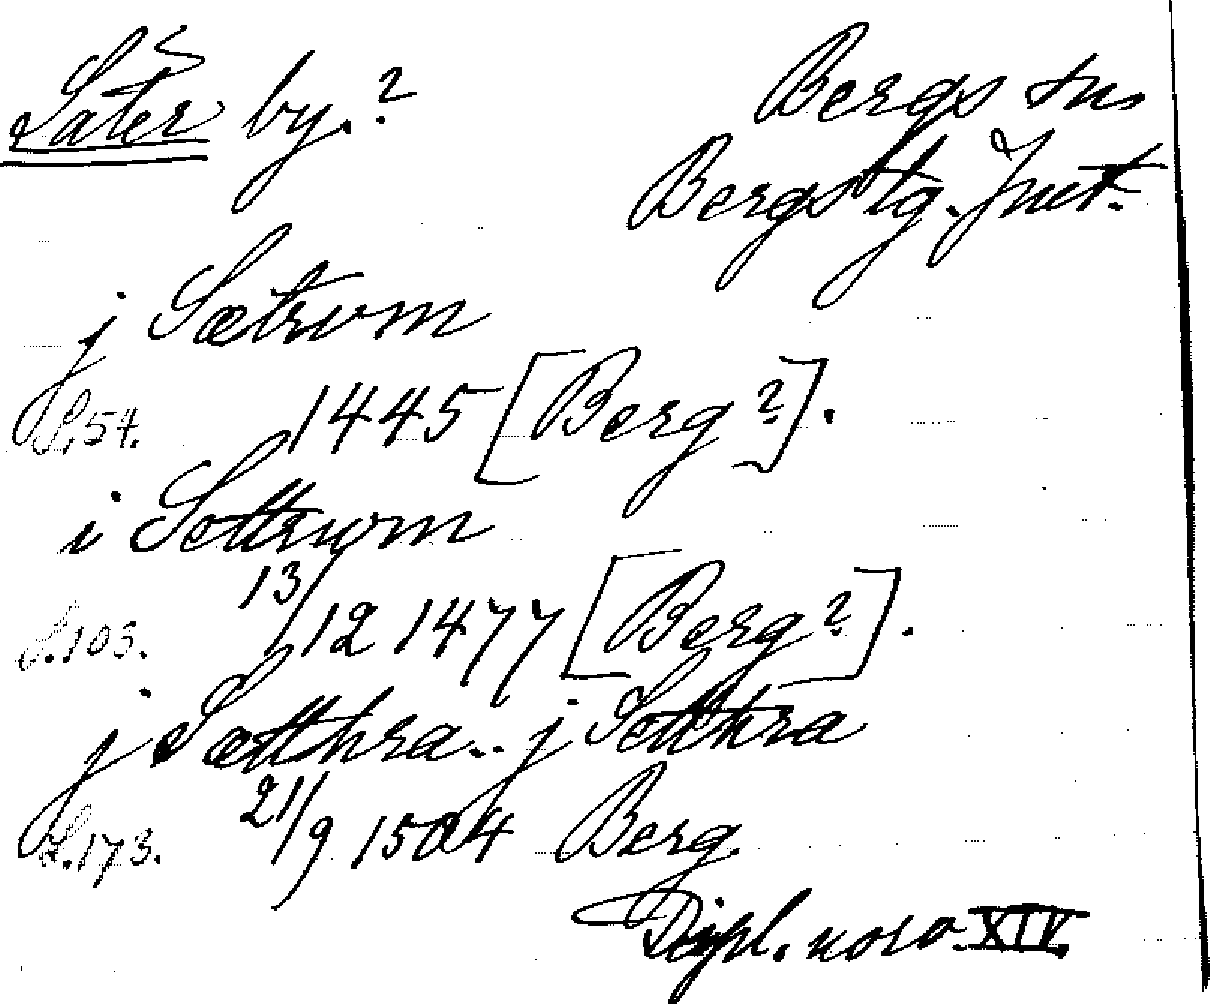 Säter by.?
Bergs sn,
Bergs tg. Jmt.
j Sætrom
S.54. 1445 [Berg?].
i Settrom
S.103. 13/12 1477 [Berg?].
j Sætthra.. j Setthra
S.173. 21/9 1504 Berg.
Dipl. norv. XIV.